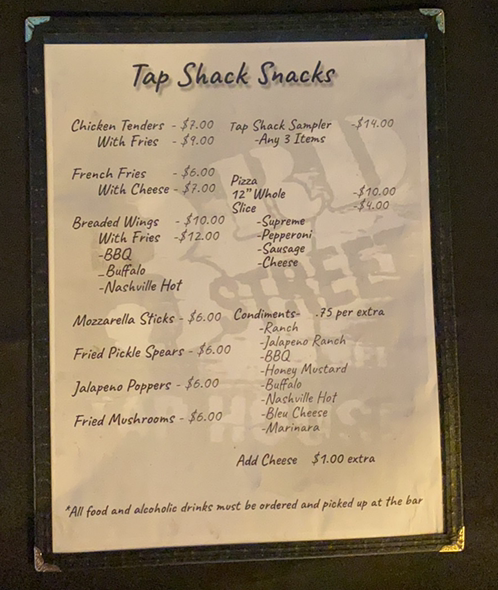 Tap Shack Snacks
Chicken Tenders - $7.00
With Fries - $9.00
French Fries - $6.00
With Cheese - $7.00
Breaded Wings - $10.00
With Fries -$12.00
-BBQ
-Buffalo
-Nashville Hot
Mozzarella Sticks - $6.00
Fried Pickle Spears - $6.00
Jalapeno Poppers - $6.00
Fried Mushrooms - $6.00
Tap Shack Sampler -$14.00
-Any 3 Items
Pizza
12" Whole -$10.00
Slice -$4.00
-Supreme
-Pepperoni
-Sausage
-Cheese
Condiments- .75 per extra
-Ranch
-Jalapeno Ranch
-BBQ
-Honey Mustard
-Buffalo
-Nashville Hot
-Bleu Cheese
-Marinara
Add Cheese $1.00 extra
*All food and alcoholic drinks must be ordered and picked up at the bar
STREET